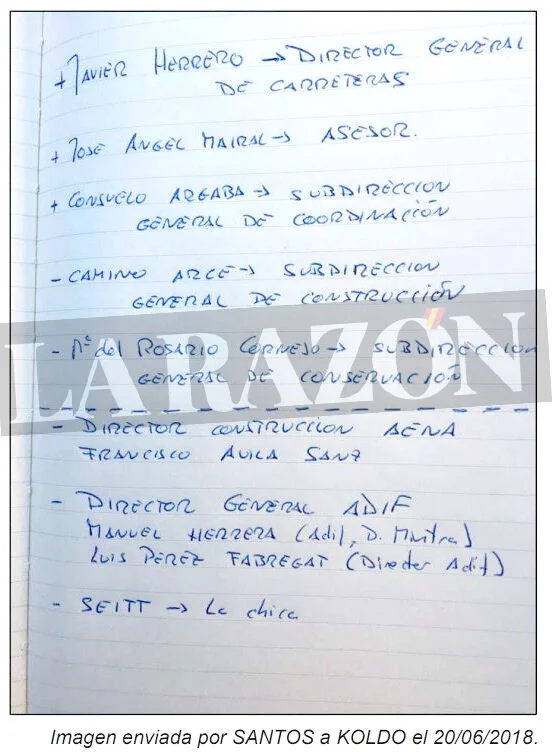 + JAVIER HERRERO → DIRECTOR GENERAL
DE CARRETERAS
+ JOSE ÁNGEL MAIRAL → ASESOR.
+ CONSUELO ARGABA → SUBDIRECCION
GENERAL DE COORDINACIÓN
- CAMINO ARCE → SUBDIRECCION
GENERAL DE CONSTRUCCIÓN
- Mª del ROSARIO CORNEJO → SUBDIRECCION
GENERAL DE CONSERVACIÓN
LA RAZÓN
- DIRECTOR CONSTRUCCION AENA
FRANCISCO AVILA SANZ
- DIRECTOR GENERAL ADIF
MANUEL HERRERA (Adif, D.
LUIS PEREZ FABREGAT (Director Adif)
- SEITT → La chica
Imagen enviada por SANTOS a KOLDO el 20/06/2018.